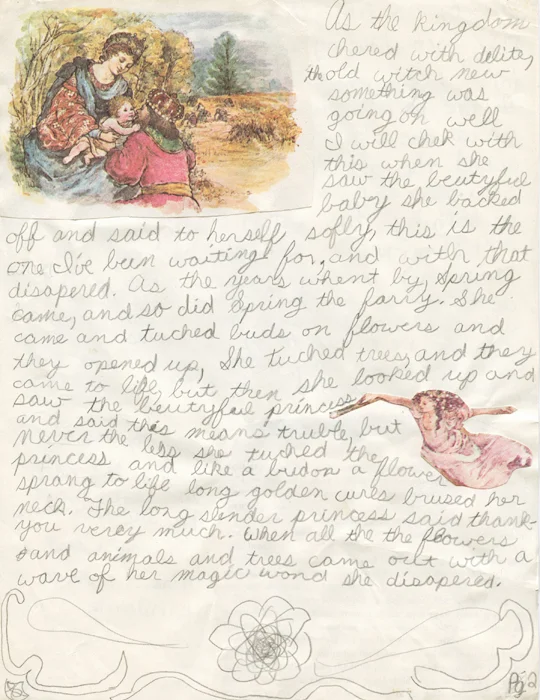 As the kingdom
chered with delite,
the old witch new
something was
going on well
I will chek with
this when she
saw the beutyful
baby she backed
off and said to herself, sofly, this is the
one I've been waiting for, and with that
disapered. As the years whent by, Spring
came, and so did Spring the farry. She
came and tuched buds on flowers and
they opened up, She tuched trees, and they
came to life, but then she looked up and
saw the beutyful princess
and said this means truble, but
never the less she tuched the
princess and like a bud on a flower
sprang to life long golden cures brused her
neck. The long slender princess said thank-
you verey much. When all the the flowers
and animals and trees came out with a
wave of her magic wond she disapered.
Pg 2